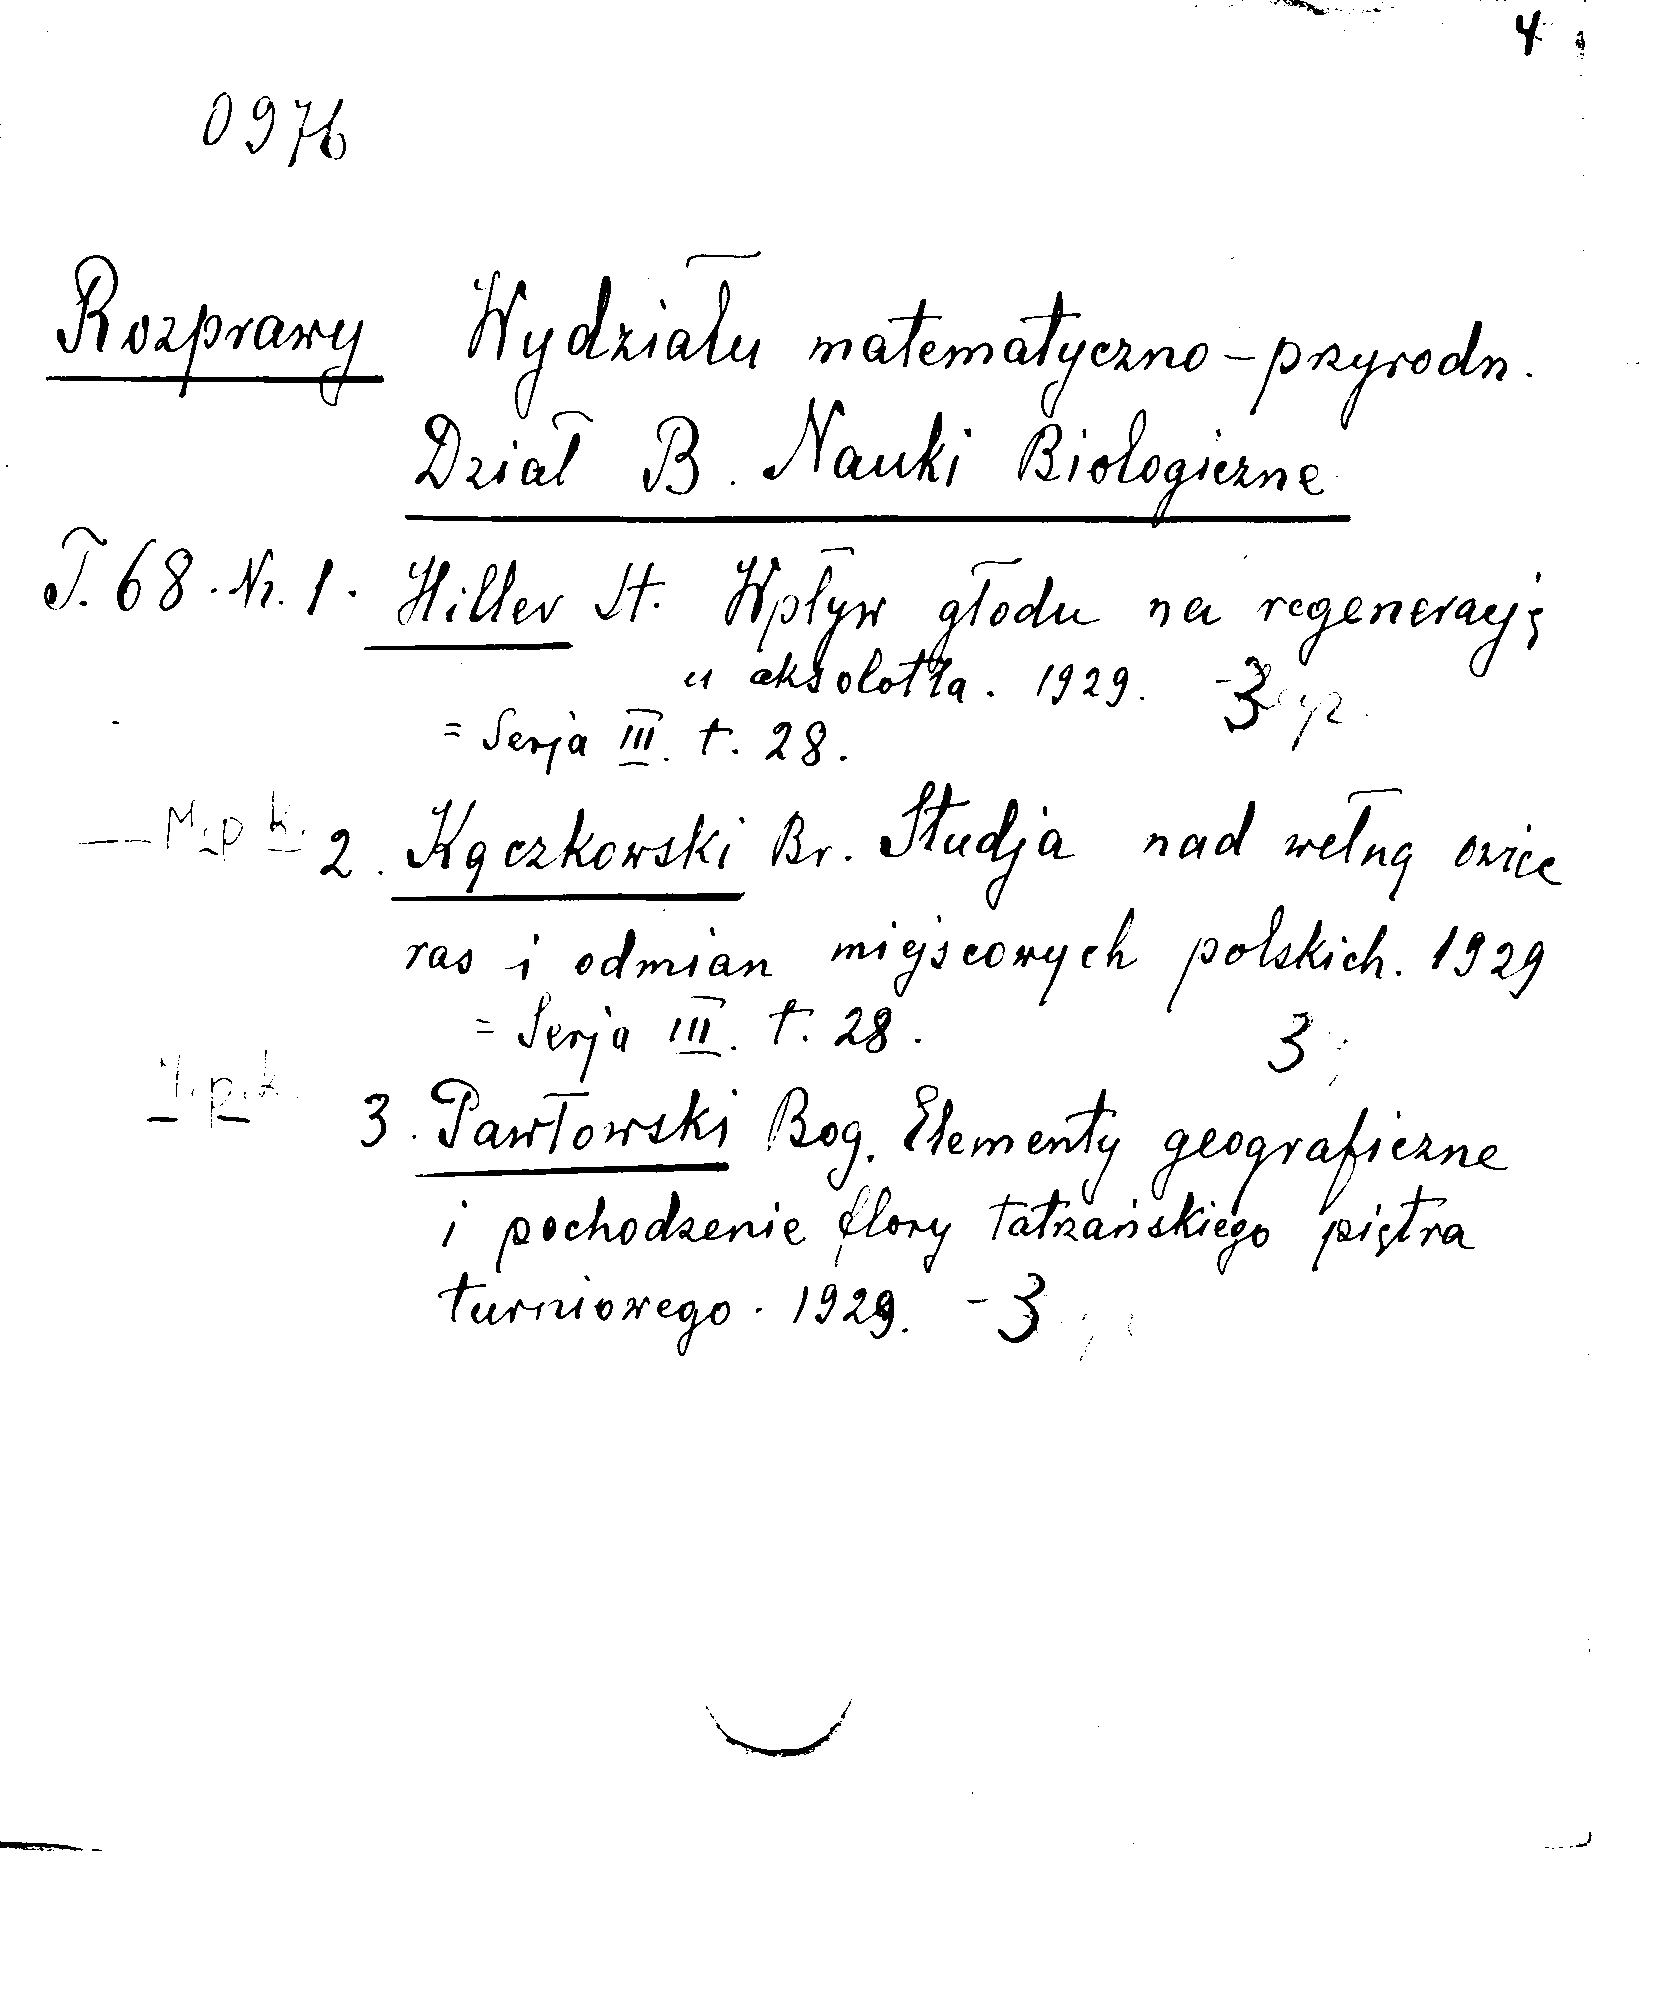 4
0976
Rozprawy Wydziału matematyczno-przyrodn.
Dział B. Nauki Biologiczne
T. 68. Nr. 1. Hiller St. Wpływ głodu na regenerację
u aksolotla. 1929. - 3
= Serja III. t. 28.
M.p.k. 2. Kączkowski Br. Studja nad wełną owiec
ras i odmian miejscowych polskich. 1929
= Serja III. t. 28. 3
3. Pawłowski Bog. Elementy geograficzne
i pochodzenie flory tatrzańskiego piętra
turniowego. 1929. - 3